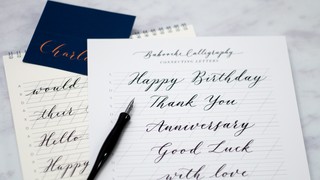 Charl
would
their
Hello
Happy
Calligraphy
CONNECTING LETTERS
Happy Birthday
Thank You
Anniversary
Good Luck
with love